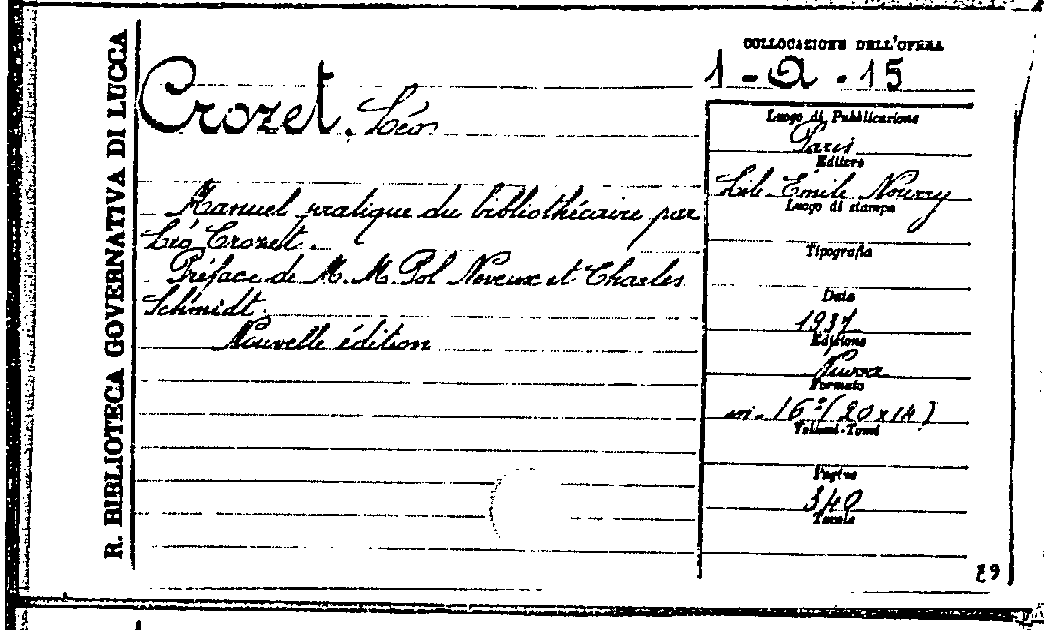 R. BIBLIOTECA GOVERNATIVA DI LUCCA
Crozet, Léon
Manuel pratique du bibliothécaire par
Léo Crozet.
Préface de M. M. Pol Neveux et Charles
Schmidt.
Nouvelle édition
COLLOCAZIONE DELL'OPERA
1 - Q - 15
Luogo di Pubblicazione
Paris
Editore
Lib. Emile Nourry
Luogo di stampa
Tipografia
Data
1937
Edizione
Nuova
Formato
in - 16º (20 x 14)
Volumi-Tomi
Pagine
340
Tavole
29